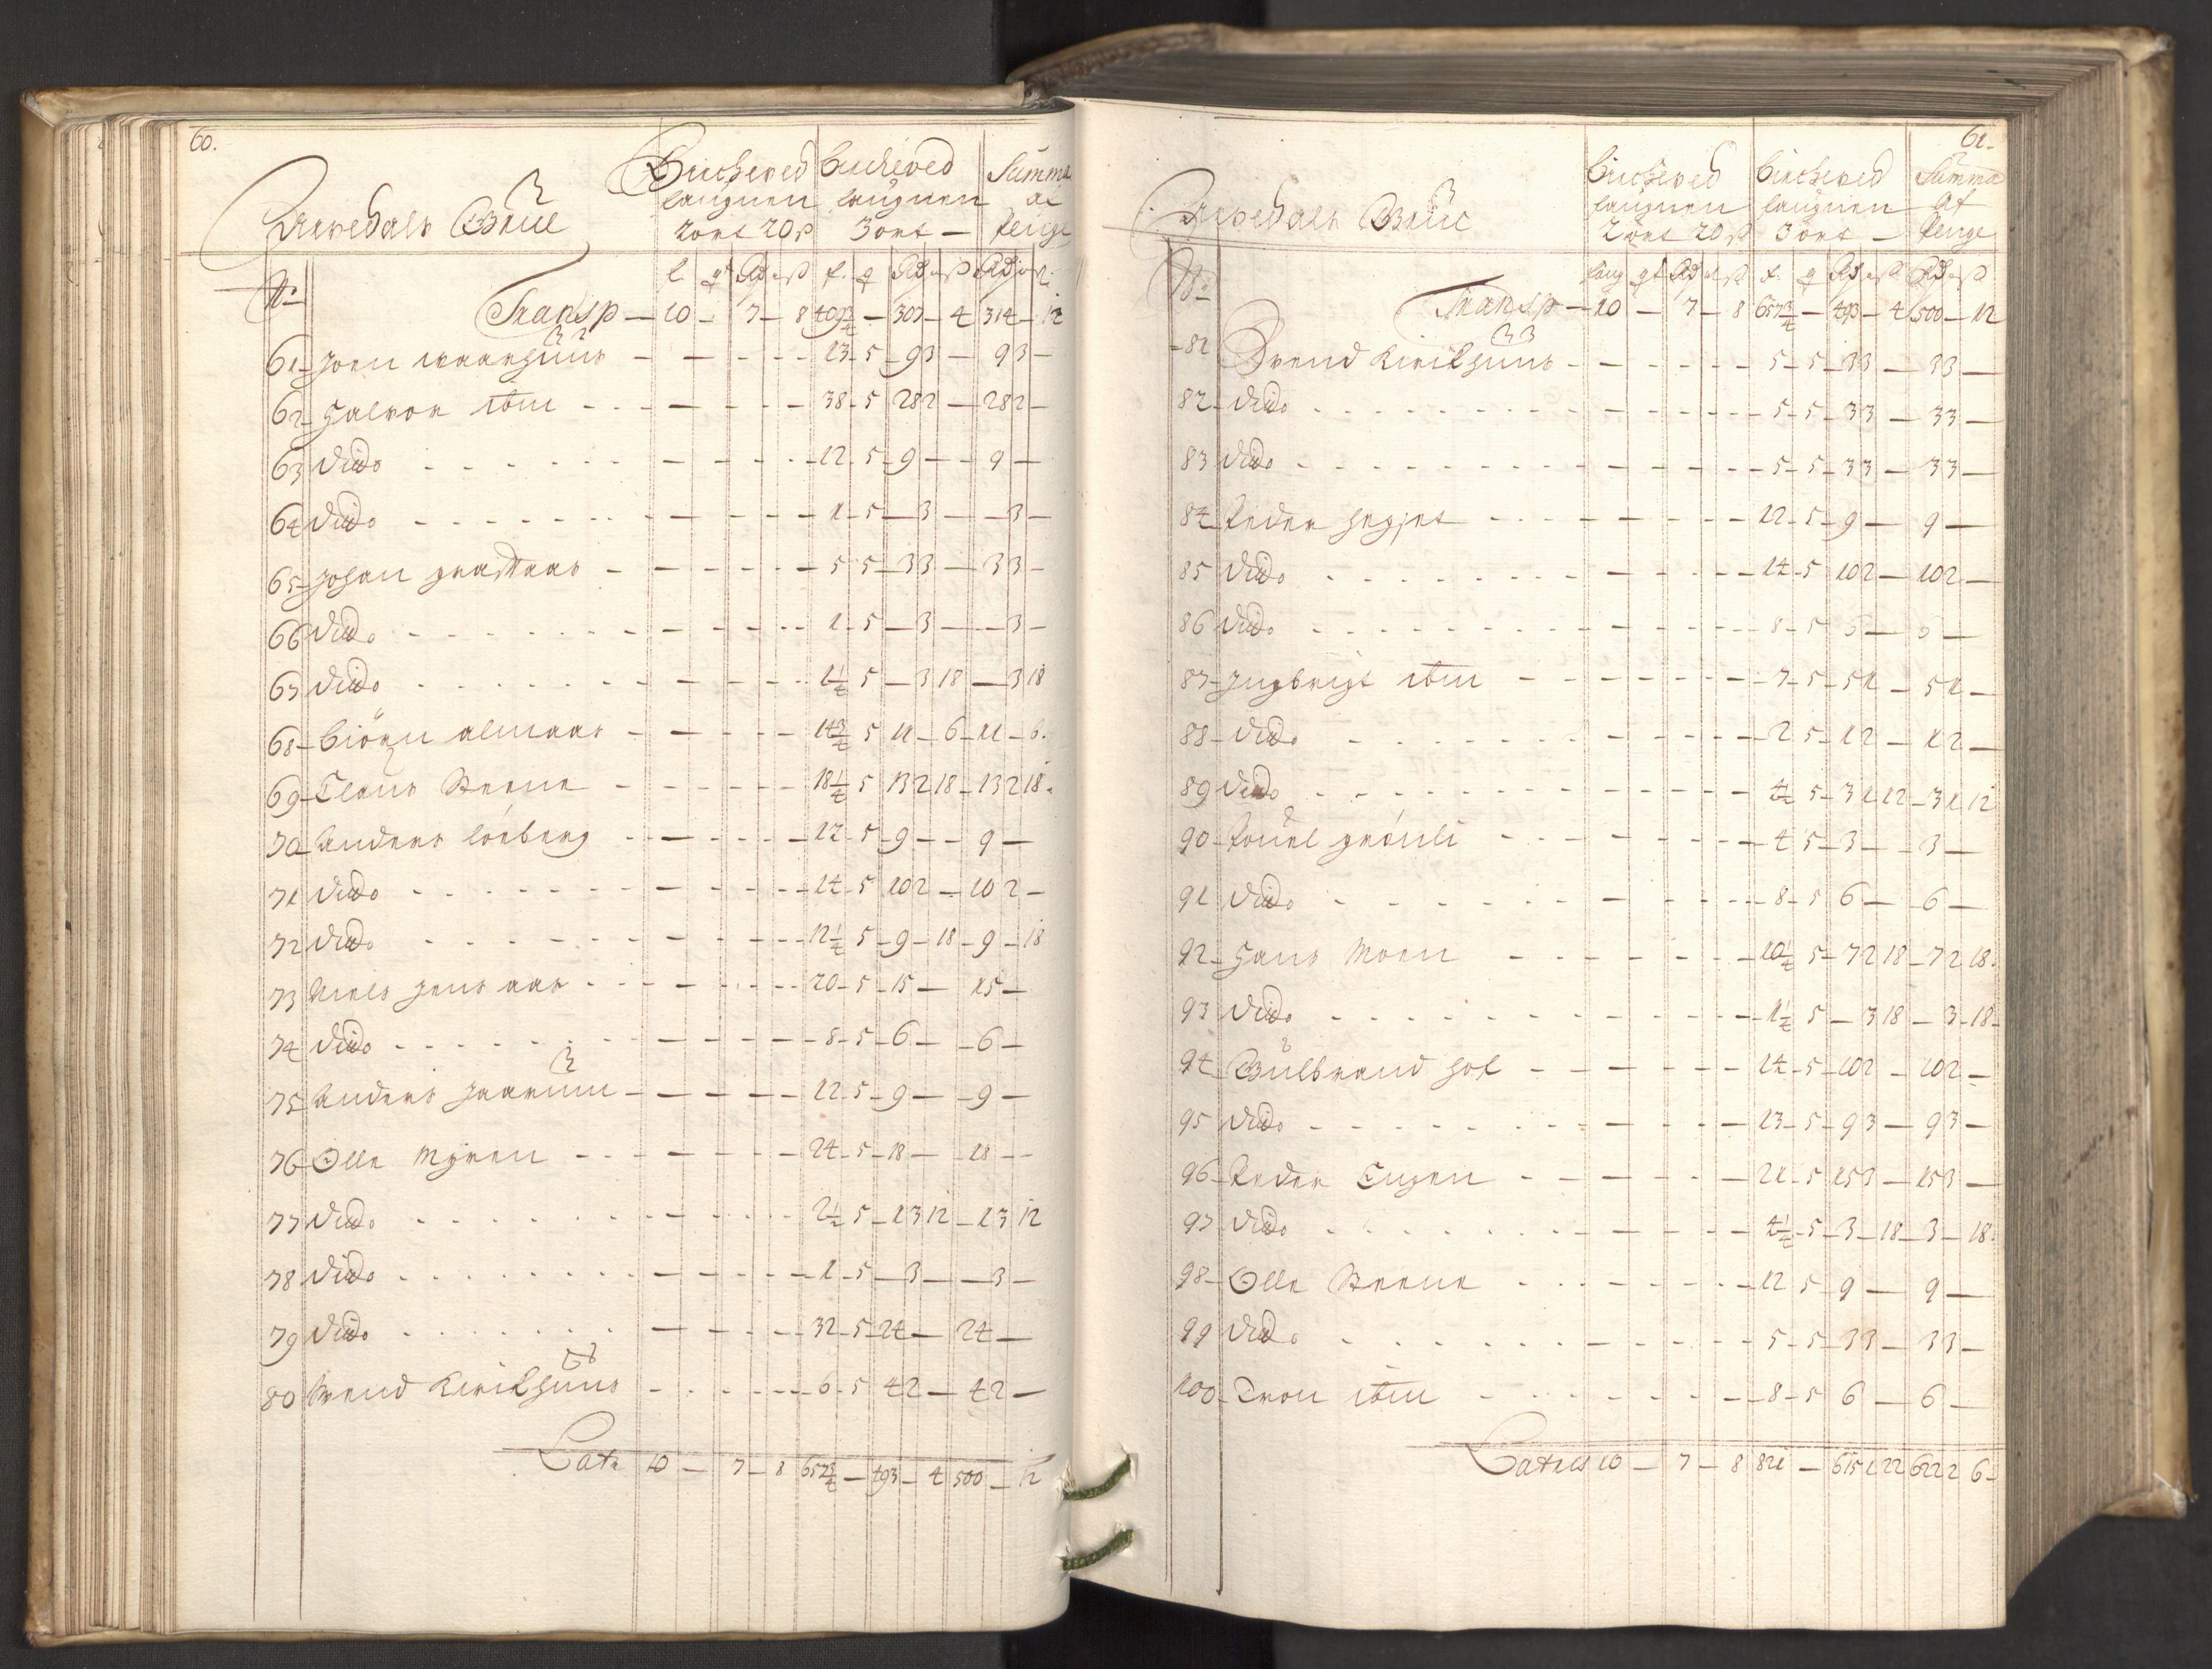 60.
Bircheved Bircheved Summa
laugnen laugnen af
2 ort 20 ß 3 ort — penge
Arvedals Bruc
No l q Rd ort ß l. q Rd ort ß Rd ort ß
Transp — 10 — 7 — 8 409 3/4 — 307 — 4 314 — 12
61 Joen - - - 13 - 5 - 9 3 — 9 3 —
62 Halvor ibm - - - 38 - 5 28 2 — 28 2 —
63 dido - - - 12 - 5 - 9 — 9 —
64 dido - - - 1 - 5 — 3 — 3 —
65 Johan - - - 5 5 - 3 3 — 3 3 —
66 dido - - - 1 - 5 — 3 — 3 —
67 dido - - - 1 1/4 5 — 3 18 — 3 18
68 Biörn almaas - - - 14 3/4 5 11 — 6 - 11 — 6.
69 Claus Steene - - - 18 1/4 5 13 2 18 - 13 2 18.
70 Anders löeberg - - - 12 - 5 - 9 — 9 —
71 dido - - - 14 - 5 10 2 — 10 2 —
72 dido - - - 12 1/4 5 - 9 — 18 - 9 — 18
73 Niels - - - 20 - 5 - 15 — 15 —
74 dido - - - 8 - 5 - 6 — 6 —
75 Anders - - - 12 5 - 9 — 9 —
76 Olle Myren - - - 24 - 5 - 18 — 18 —
77 dido - - - 2 1/2 5 - 1 3 12 - 1 3 12
78 dido - - - 1 - 5 — 3 — 3 —
79 dido - - - 32 - 5 - 24 — 24 —
80 Svend - - - 6 - 5 4 2 — 4 2 —
Late 10 — 7 — 8 657 3/4 — 493 — 4 500 — 12
61.
Bircheved Bircheved Summa
laugnen laugnen af
2 ort 20 ß 3 ort — Penge
Arvedals Bruc
No laug qt Rd ort ß l. q Rd ort ß Rd ort ß
Transp — 10 — 7 — 8 657 3/4 — 493 — 4 500 — 12
81 Svend - - - 5 - 5 - 3 3 — 3 3 —
82 dido - - - 5 - 5 - 3 3 — 3 3 —
83 dido - - - 5 - 5 - 3 3 — 3 3 —
84 Peder - - - 12 - 5 - 9 — 9 —
85 dido - - - 14 - 5 10 2 — 10 2 —
86 dido - - - 8 - 5 6 — 6 —
87 Ingbrigt ibm - - - 7 - 5 - 5 1 — 5 1 —
88 dido - - - 2 5 - 1 2 — 1 2 —
89 dido - - - 4 1/2 5 - 3 1 12 - 3 1 12
90 Povel grönli - - - 4 5 - 3 — 3 —
91 dido - - - 8 - 5 6 — 6 —
92 Hans Moen - - - 10 1/4 5 - 7 2 18 - 7 2 18.
93 dido - - - 1 1/4 5 — 3 18 — 3 - 18 -
94 Gulbrand hof - - - 14 - 5 - 10 2 — 10 2 —
95 dido - - - 13 - 5 - 9 3 — 9 3 —
96 Peder - - - 21 - 5 15 3 — 15 3 —
97 dido - - - 4 1/4 - 5 - 3 — 18 - 3 — 18.
98 Olle Steene - - - 12 5 - 9 — 9 —
99 dido - - - 5 - 5 - 3 3 — 3 3 —
100 Iver ibm - - - 8 - 5 6 — 6 —
Latus 10 — 7 — 8 821 — 615 1 22 622 2 6 -